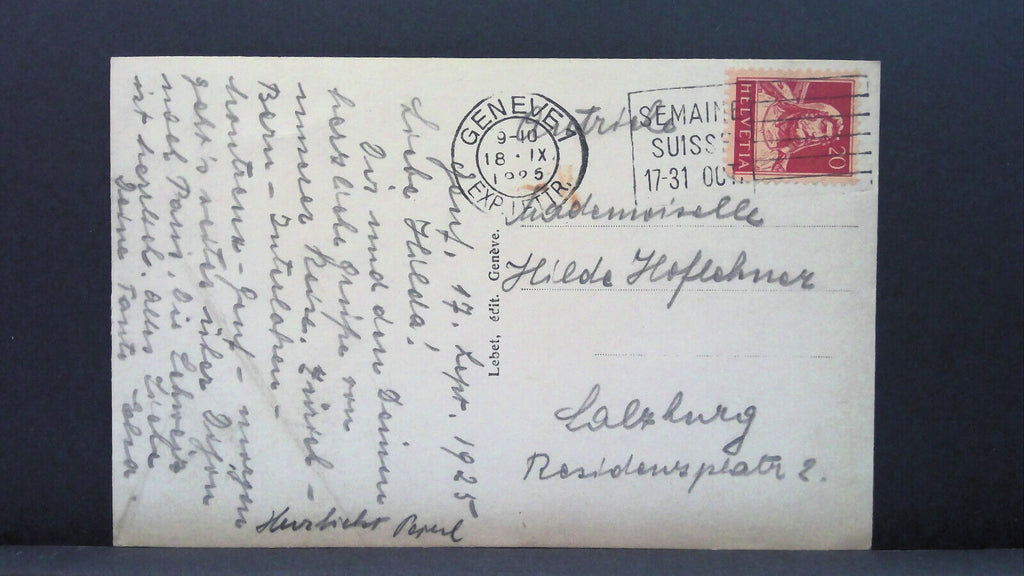 Genf, 17. Sept. 1925
Liebe Hilda!
Dir und den Deinen
herzliche Grüße von
unserer Reise. Zürich -
Bern - Interlaken -
Montreux - Genf - morgen
geht's weiter über Dijon
nach Paris. Die Schweiz
ist herrlich. Alles Liebe
Deine Tante
Herzlichst
Lebet, édit. Genève.
GENEVE 1
9-10
18 · IX.
1925
EXP. LETTR.
SEMAINE
SUISSE
17-31 OCT.
HELVETIA
20
Mademoiselle
Hilde Hoflehner
Salzburg
Residenzplatz 2.